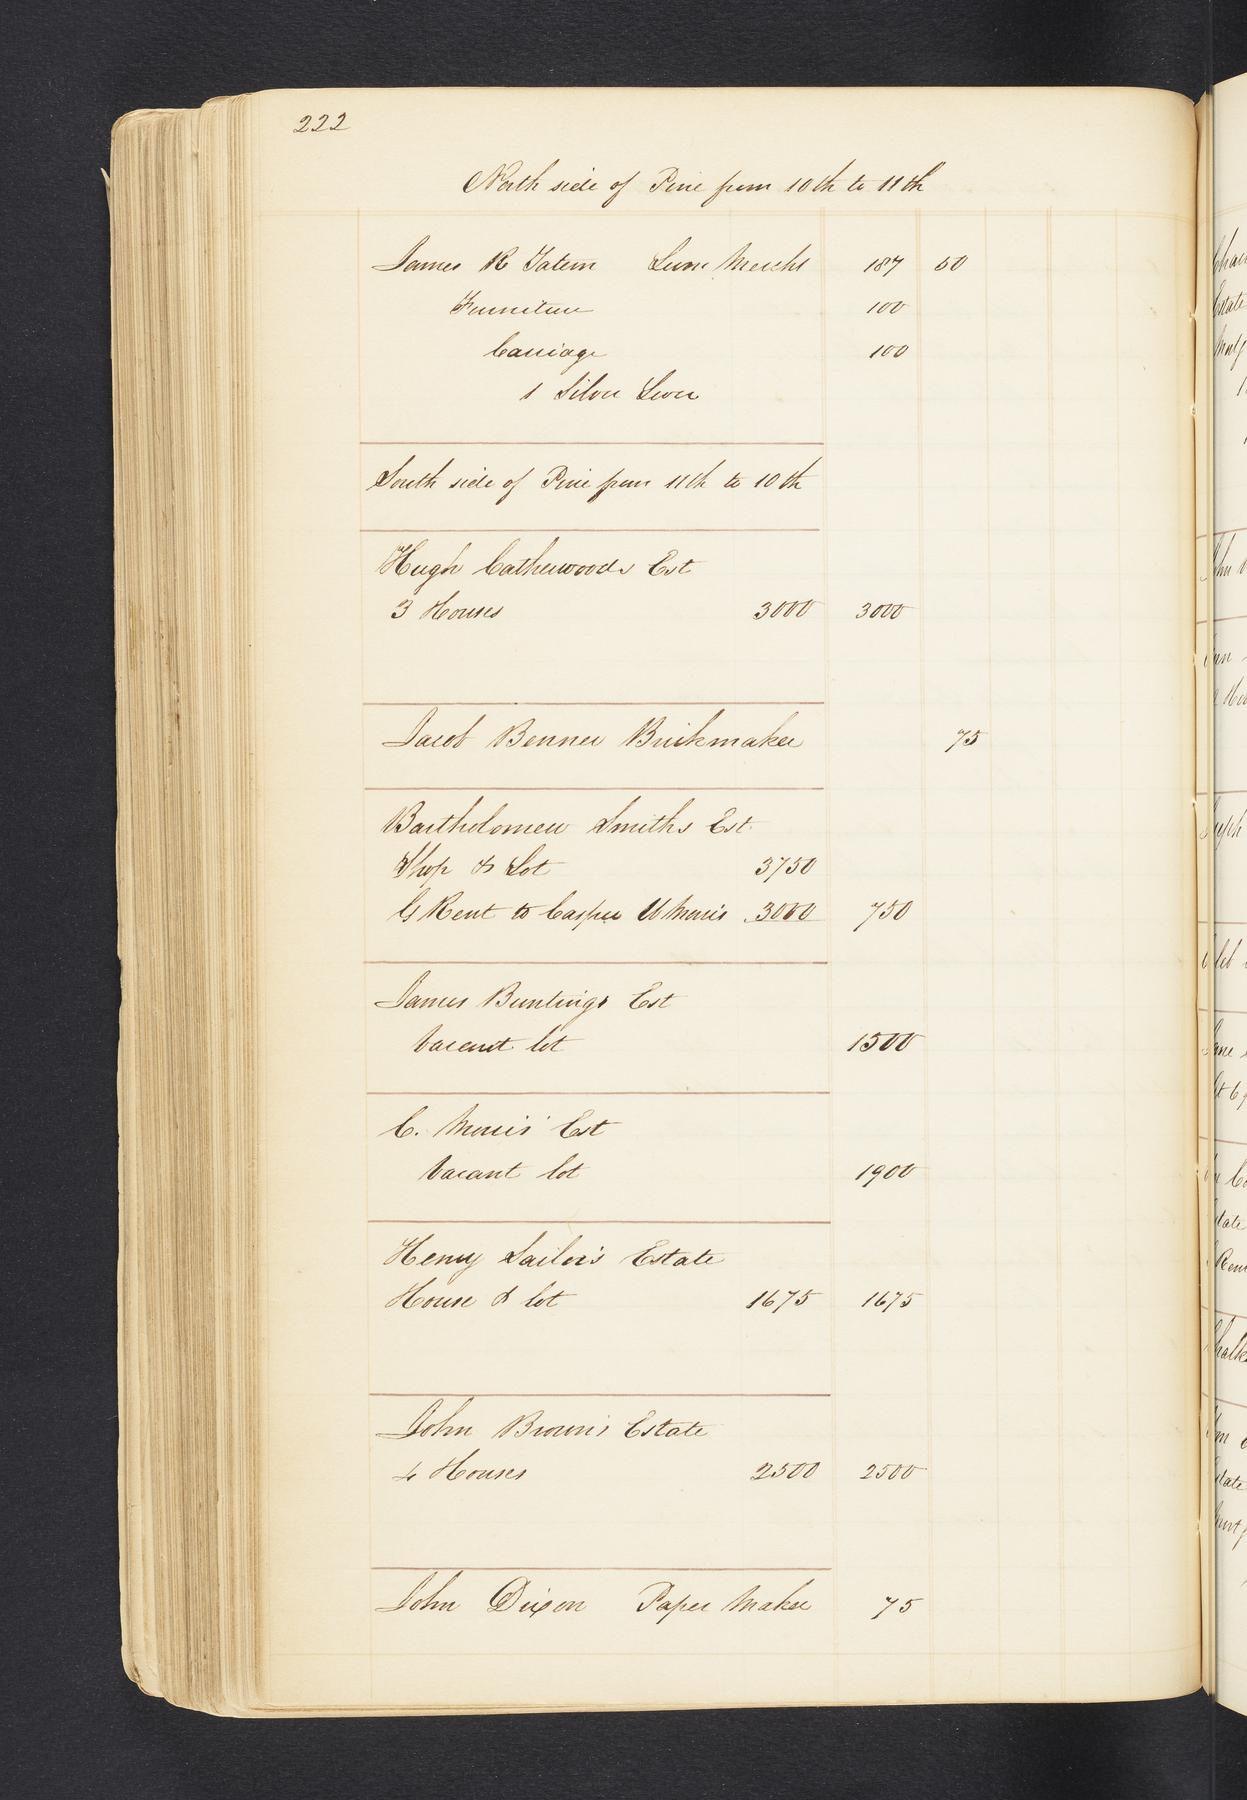 222
North side of Pine from 10th to 11th
James R Tatem Lum Mercht 187 50
Furniture 100
Carriage 100
1 Silver Lever
South side of Pine from 11th to 10th
Hugh Catherwoods Est
3 Houses 3000 3000
Jacob Benner Brickmaker 75
Bartholomew Smiths Est.
Shop & Lot 3750
G Rent to Casper W Morris 3000 750
James Buntings Est
Vacant lot 1500
C. Morris' Est
Vacant lot 1900
Henry Sailor's Estate
House & lot 1675 1675
John Brown's Estate
4 Houses 2500 2500
John Dixon Paper Maker 75